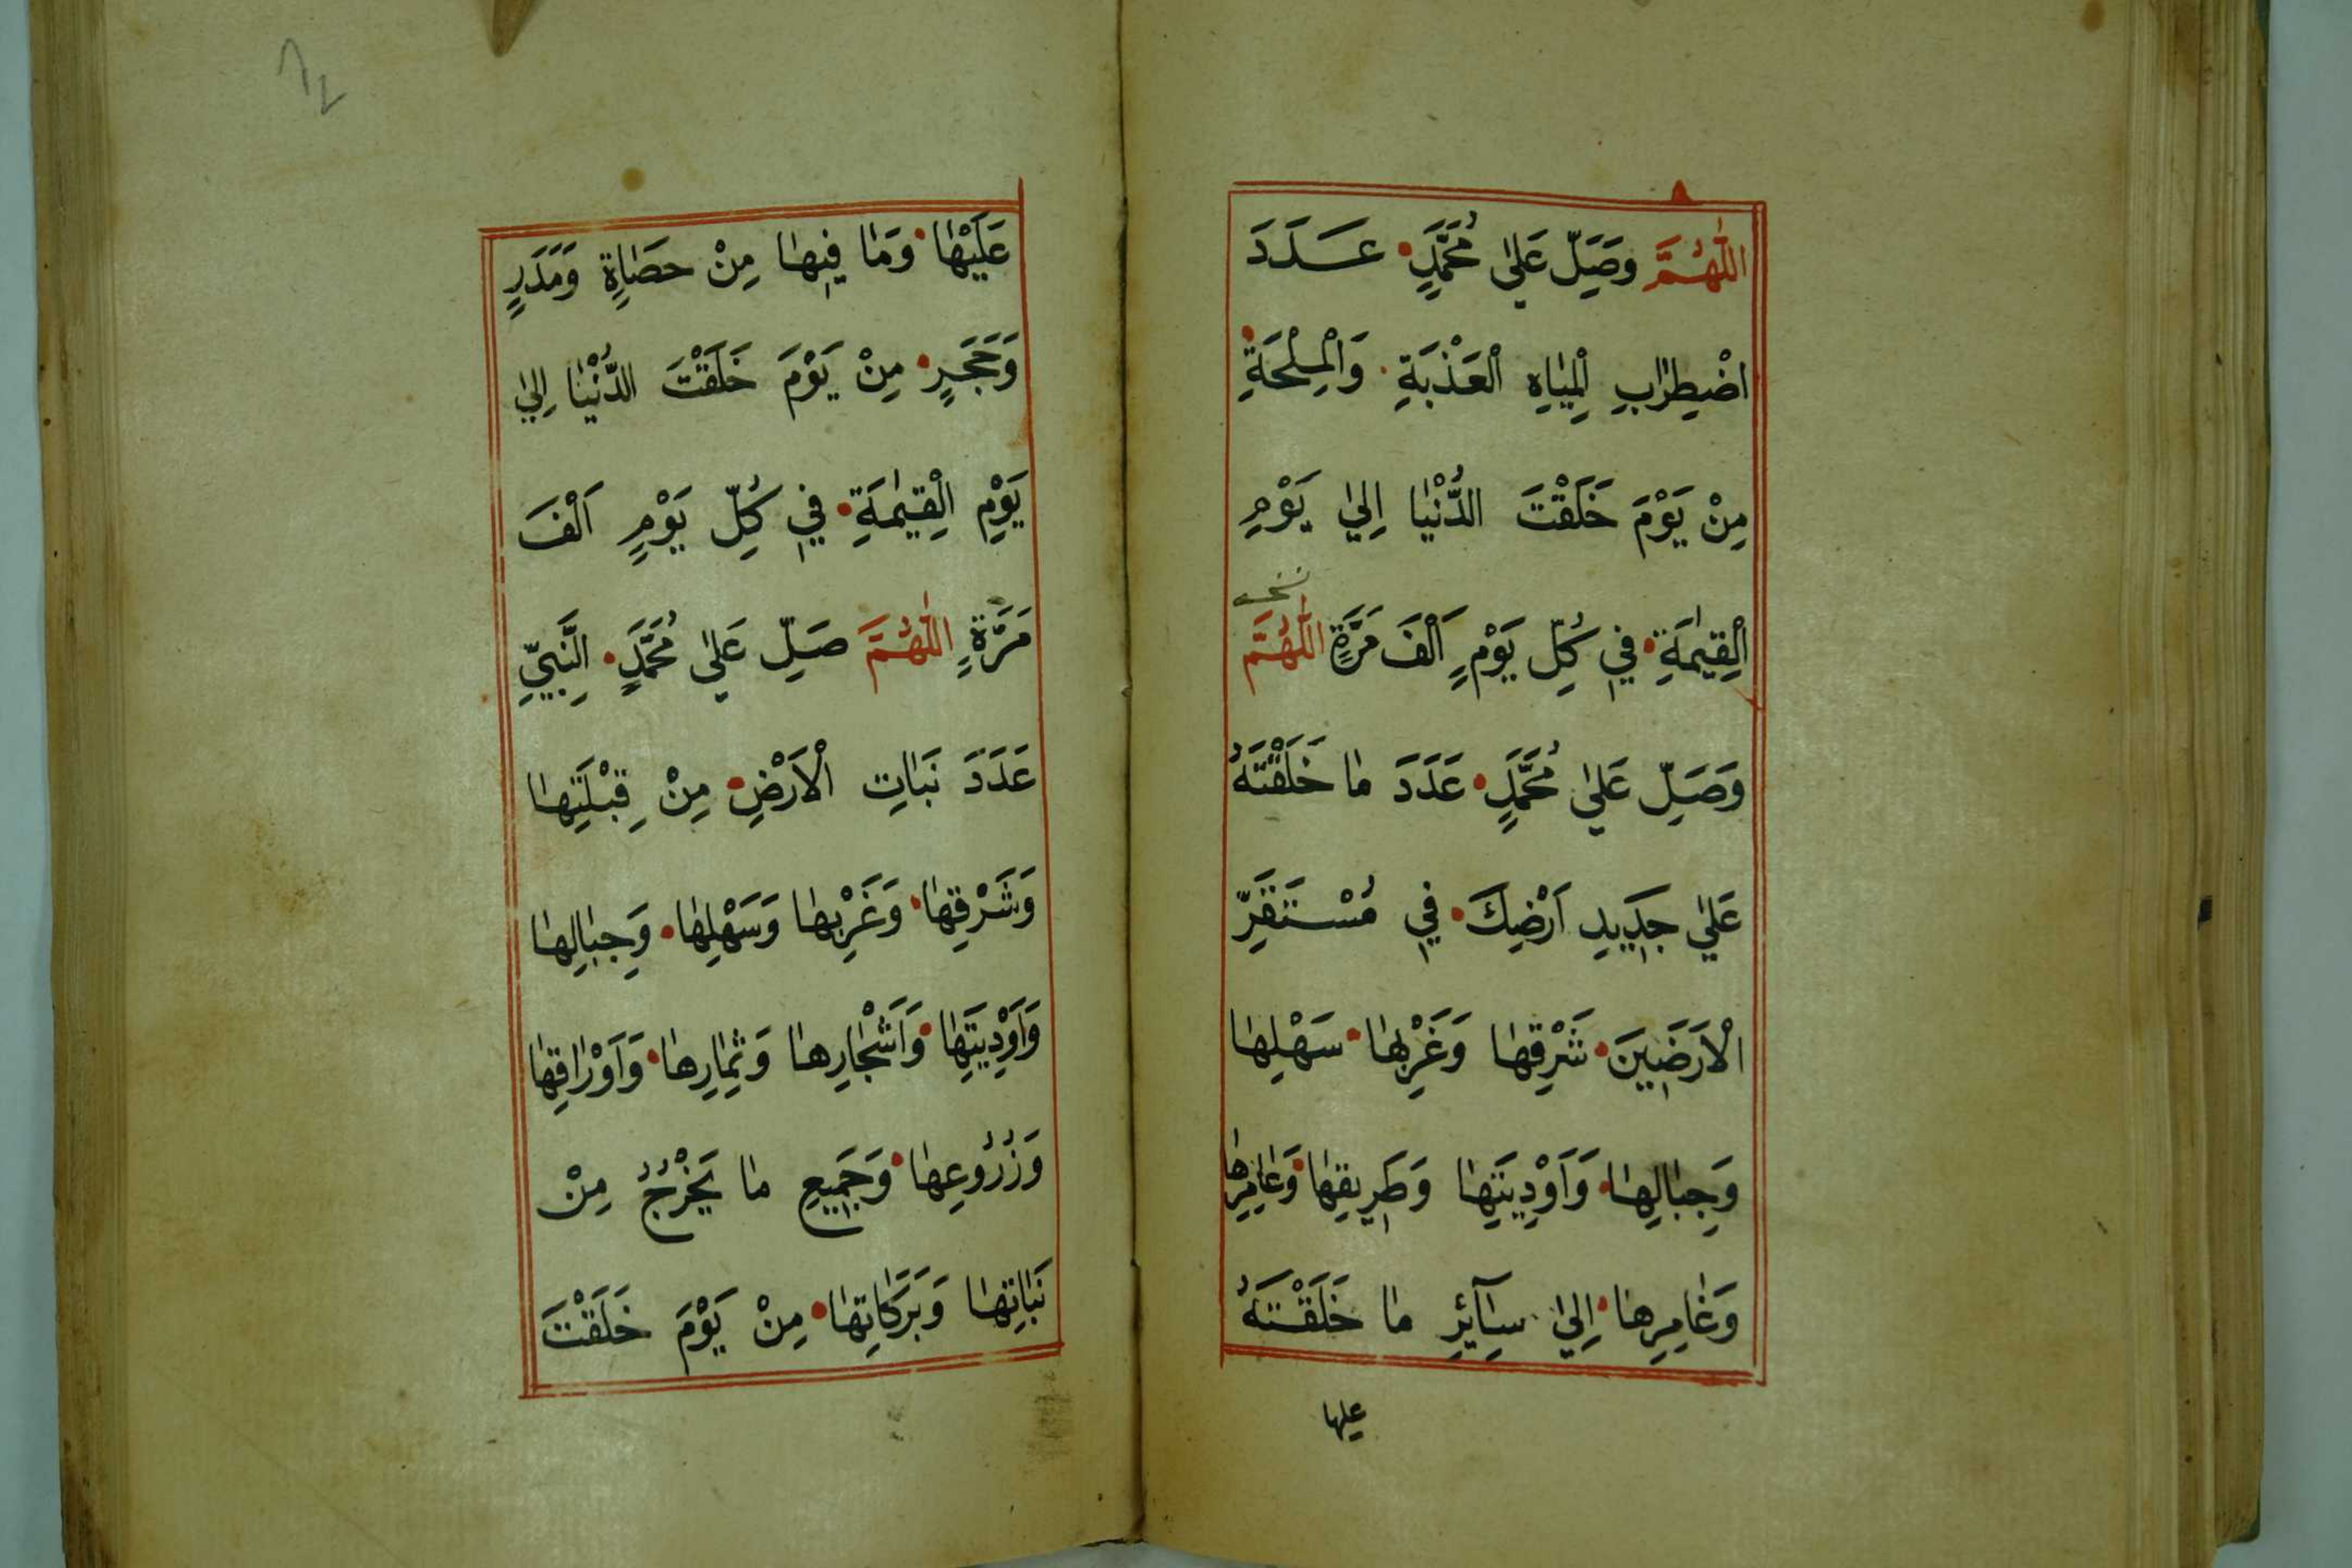 اَللّٰهُمَّ وَصَلِّ عَلٰى مُحَمَّدٍ عَدَدَ
اضْطِرَابِ الْمِيَاهِ الْعَذْبَةِ وَالْمِلْحَةِ
مِنْ يَوْمَ خَلَقْتَ الدُّنْيَا اِلٰى يَوْمِ
الْقِيٰمَةِ فِي كُلِّ يَوْمٍ اَلْفَ مَرَّةٍ اَللّٰهُمَّ
وَصَلِّ عَلٰى مُحَمَّدٍ عَدَدَ مَا خَلَقْتَهُ
عَلٰى جَدِيدِ اَرْضِكَ فِي مُسْتَقَرِّ
الْاَرَضِينَ شَرْقِهَا وَغَرْبِهَا سَهْلِهَا
وَجِبَالِهَا وَاَوْدِيَتِهَا وَطَرِيقِهَا وَعَامِرِهَا
وَغَامِرِهَا اِلٰى سَآئِرِ مَا خَلَقْتَهُ
عليها
عَلَيْهَا وَمَا فِيهَا مِنْ حَصَاةٍ وَمَدَرٍ
وَحَجَرٍ مِنْ يَوْمَ خَلَقْتَ الدُّنْيَا اِلٰى
يَوْمِ الْقِيٰمَةِ فِي كُلِّ يَوْمٍ اَلْفَ
مَرَّةٍ اَللّٰهُمَّ صَلِّ عَلٰى مُحَمَّدٍ النَّبِيِّ
عَدَدَ نَبَاتِ الْاَرْضِ مِنْ قِبْلَتِهَا
وَشَرْقِهَا وَغَرْبِهَا وَسَهْلِهَا وَجِبَالِهَا
وَاَوْدِيَتِهَا وَاَشْجَارِهَا وَثِمَارِهَا وَاَوْرَاقِهَا
وَزُرُوعِهَا وَجَمِيعِ مَا يَخْرُجُ مِنْ
نَبَاتِهَا وَبَرَكَاتِهَا مِنْ يَوْمَ خَلَقْتَ